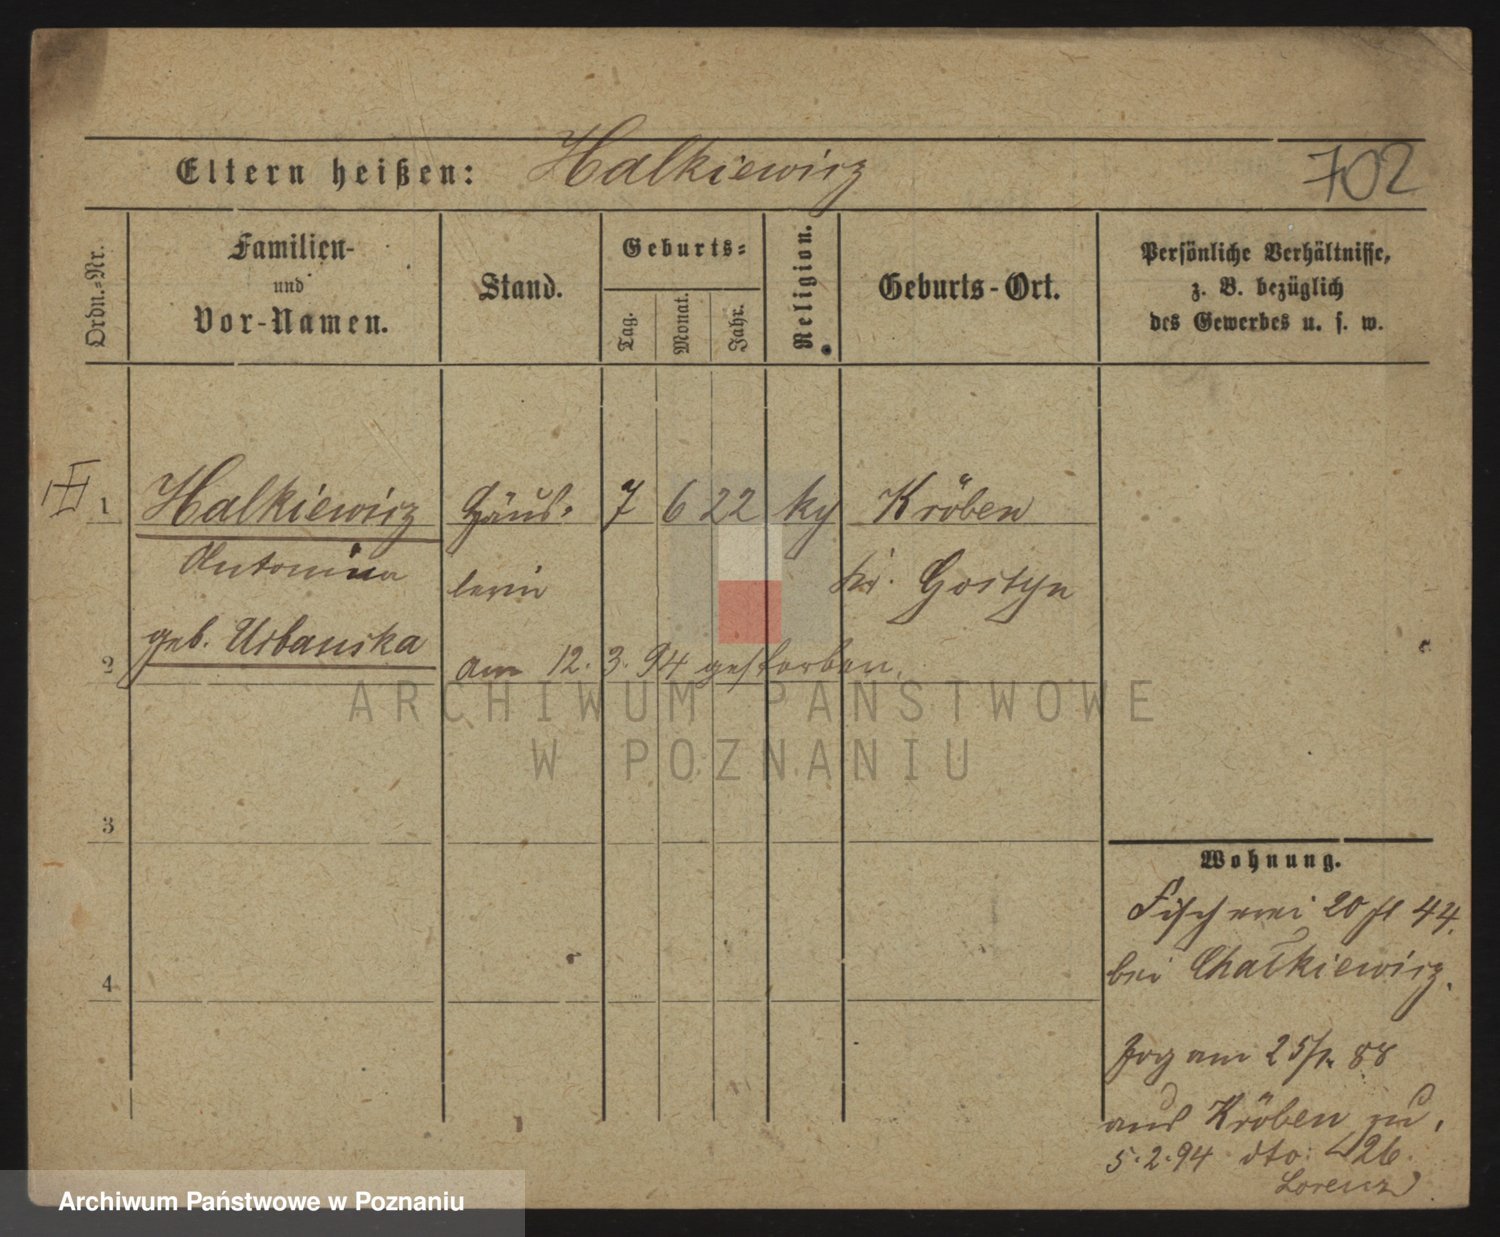 Eltern heißen: Halkiewicz 702
Ordn.-Nr.
Familien-
und
Vor-Namen.
Stand.
Geburts-
Tag.
Monat.
Jahr.
Religion.
Geburts-Ort.
Persönliche Verhältnisse,
z. B. bezüglich
des Gewerbes u. s. w.
1 Halkiewicz Häus- 7 6 22 Kröben
Antonina lerin Kr. Gostyn
geb. Urbanska
2 am 12. 3. 94 gestorben.
3
4
Wohnung.
Fischerei 20 44.
bei Chalkiewicz.
Zog am 88
aus Kröben zu.
5.2.94 dto 26.
Lorenz
ARCHIWUM PAŃSTWOWE
W POZNANIU
Archiwum Państwowe w Poznaniu